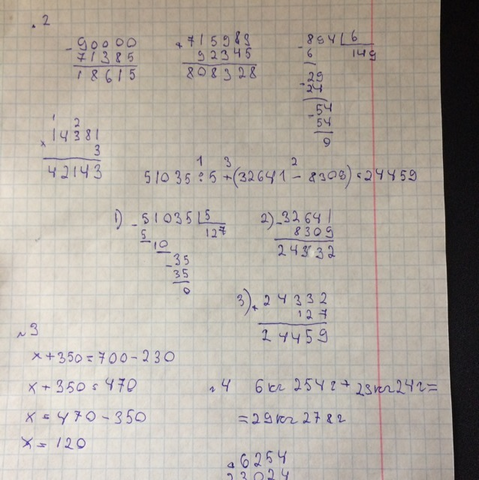 .2
- 90000
71385
18615
+ 715983
92345
808328
- 894 | 6
6 149
- 29
24
- 54
54
0
1 2
× 14381
3
42143
1 3 2
51035 : 5 + (32641 - 8309) = 24459
1) - 51035 | 5
5 127
10
- 35
35
0
2) - 32641
8309
24332
3) + 24332
127
24459
№3
x + 350 = 700 - 230
x + 350 = 470
x = 470 - 350
x = 120
№4 6кг 254г + 23кг 24г =
= 29кг 278г
+ 6254
23024